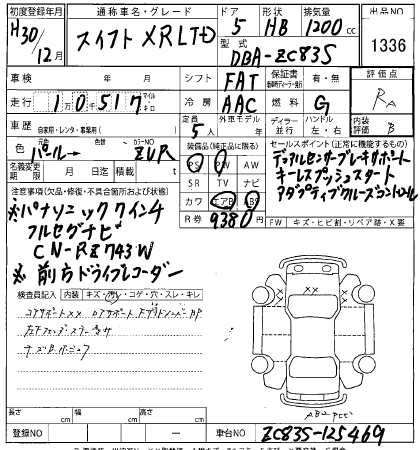 初度登録年月 通称車名・グレード ドア 形状 排気量 出品NO
H30/12月 スイフト XRLTD 5 HB 1200cc 1336
型式 DBA-ZC83S
車検 年 月 シフト FAT 保証書 有・無 評価点 RA
走行 10517 キロ マイル 冷房 AAC 燃料 G
車歴 自家用・レンタ・事業用( ) 定員 5人 外車モデル 年 ディーラー 並行 ハンドル 左・右 内装評価 B
色 パール→ 色替 カラーNO ZVR 装備品(純正品に限る) セールスポイント(正常に機能するもの)
名義変更期限 月 日 積載 t PS PW AW デュアルセンサーブレーキサポート
SR TV ナビ キーレスプッシュスタート
注意事項(欠品・修復・不具合箇所および状態) カワ エアB ABS アダプティブクルーズコントロール
R券 9380円 FW キズ・ヒビ割・リペア跡・X要
※パナソニック7インチ
フルセグナビ
CN-RZ743W
※前方ドライブレコーダー
検査員記入 内装 キズ・汚レ・コゲ・穴・スレ・キレ
コアサポートXX
長さ cm 幅 cm 高さ cm
登録NO — 車台NO ZC83S-125469